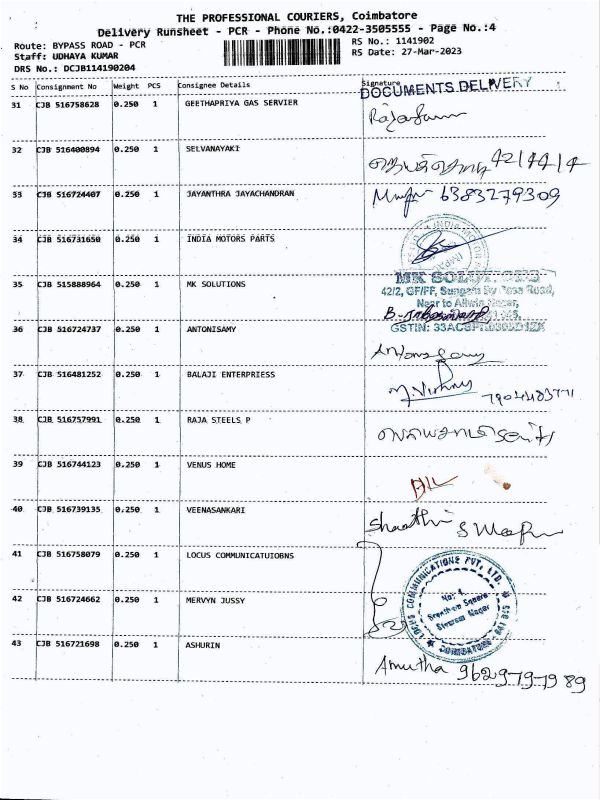 THE PROFESSIONAL COURIERS, Coimbatore
Delivery Runsheet - PCR - Phone No.:0422-3505555 - Page No.:4
Route: BYPASS ROAD - PCR
RS No.: 1141902
Staff: UDHAYA KUMAR
RS Date: 27-Mar-2023
DRS No.: DCJB114190204
S No Consignment No Weight PCS Consignee Details Signature
DOCUMENTS DELIVERY
31 CJB 516758628 0.250 1 GEETHAPRIYA GAS SERVIER
32 CJB 516400894 0.250 1 SELVANAYAKI
42/44/4
33 CJB 516724407 0.250 1 JAYANTHRA JAYACHANDRAN
6383279309
34 CJB 516731650 0.250 1 INDIA MOTORS PARTS
35 CJB 515888964 0.250 1 MK SOLUTIONS
MK SOLUTIONS
42/2, GF/FF, Sungam By Pass Road,
Near to Allwin Nagar,
36 CJB 516724737 0.250 1 ANTONISAMY
GSTIN:
37 CJB 516481252 0.250 1 BALAJI ENTERPRIESS
38 CJB 516757991 0.250 1 RAJA STEELS P
39 CJB 516744123 0.250 1 VENUS HOME
40 CJB 516739135 0.250 1 VEENASANKARI
Shaathi
41 CJB 516758079 0.250 1 LOCUS COMMUNICATUIOBNS
LOCUS COMMUNICATIONS PVT. LTD.
42 CJB 516724662 0.250 1 MERVYN JUSSY
No: 4,
Sreethem Square
Sivaram Nagar
COIMBATORE - 641 045
43 CJB 516721698 0.250 1 ASHURIN
Amutha 9629797989